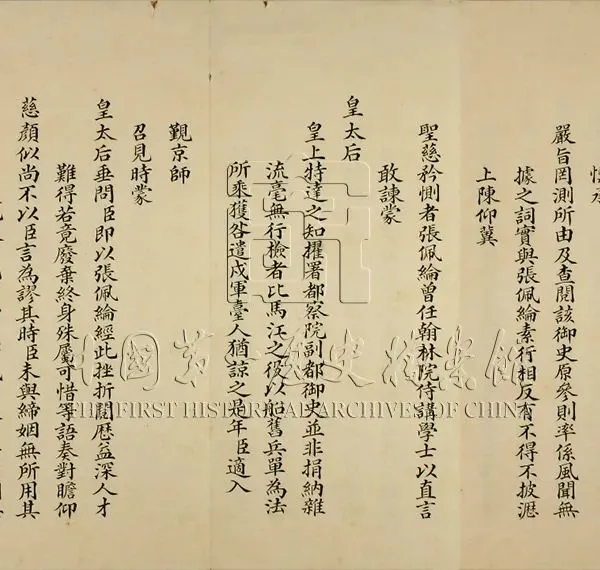 嚴旨罔測所由及查閱該御史原參則率係風聞無
據之詞實與張佩綸素行相反有不得不披瀝
上陳仰冀
聖慈矜惻者張佩綸曾任翰林院侍講學士以直言
敢諫蒙
皇太后
皇上特達之知擢署都察院副都御史並非捐納雜
流毫無行檢者比馬江之役以船舊兵單為法
所乘獲咎遣戍軍臺人猶諒之是年臣適入
覲京師
召見時蒙
皇太后垂問臣即以張佩綸經此挫折閱歷益深人才
難得若竟廢棄終身殊屬可惜等語奏對瞻仰
慈顏似尚不以臣言為謬其時臣未與締姻無所用其
中國第一歷史檔案館
THE FIRST HISTORICAL ARCHIVES OF CHINA